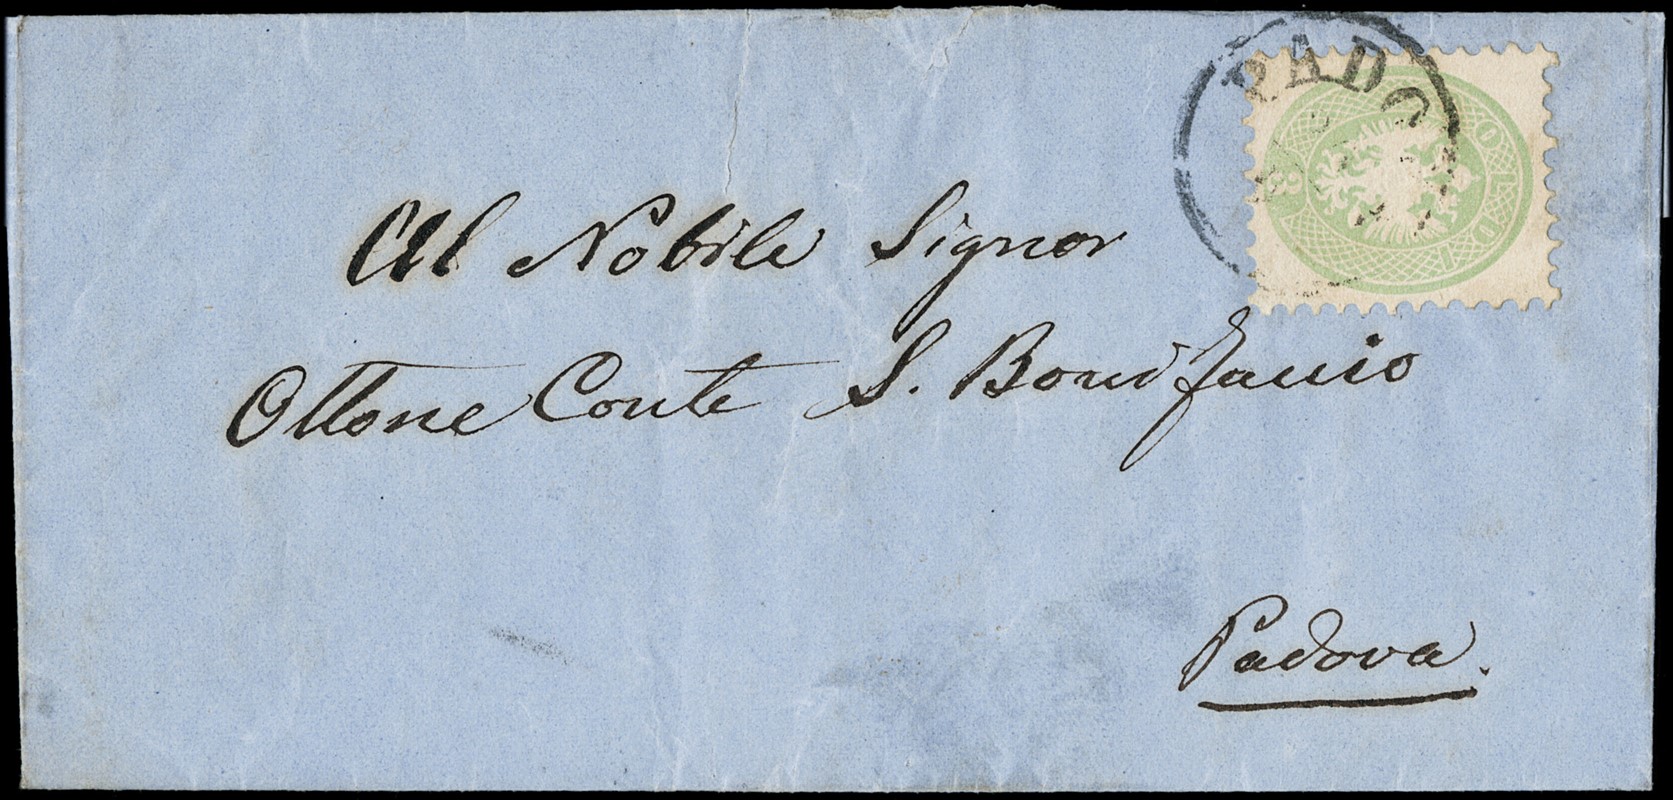 PADO
3 SOLDI
Al Nobile Signor
Ottone Conte S. Bonifacio
Padova.